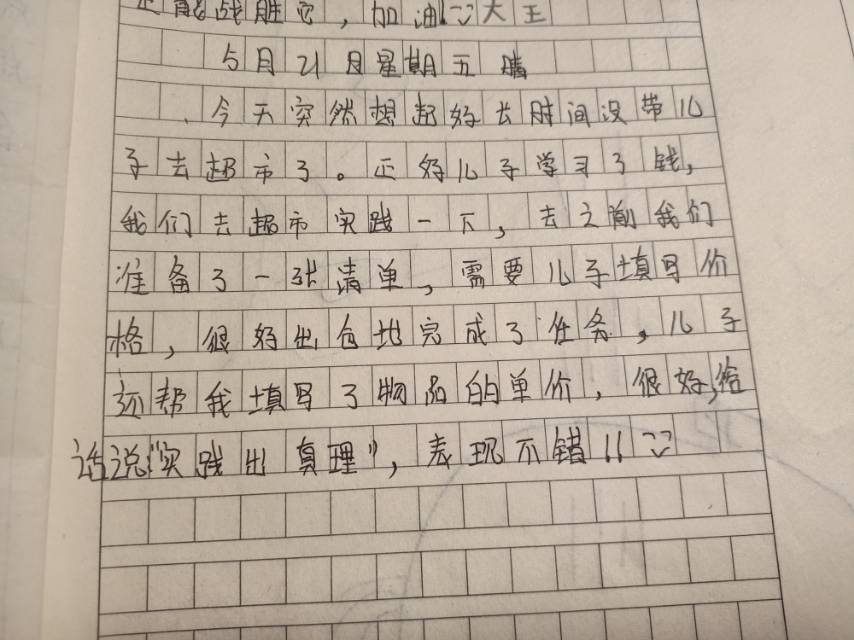 定能战胜它，加油！大王
5月21日星期五 晴
今天突然想起好长时间没带儿
子去超市了。正好儿子学习了钱，
我们去超市实践一下，去之前我们
准备了一张清单，需要儿子填写价
格，很好出色地完成了任务，儿子
还帮我填写了物品的单价，很好，俗
话说"实践出真理"，表现不错！！